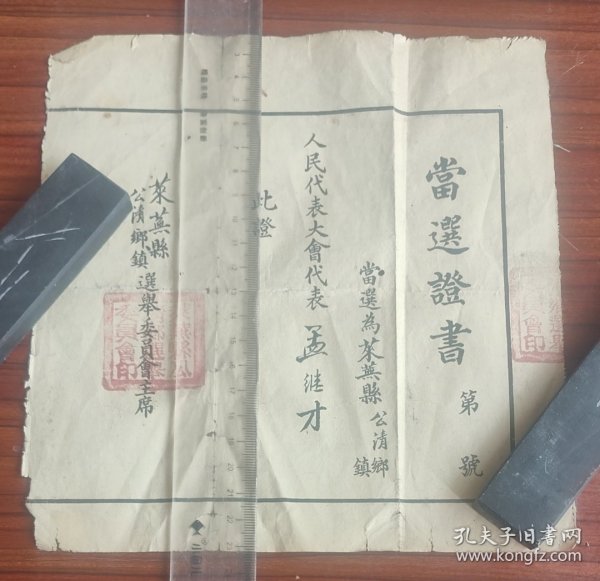 當選證書
第 號
當選為萊蕪縣公清鄉鎮
人民代表大會代表孟继才
此證
萊蕪縣
公清鄉鎮選舉委員會主席
孔夫子旧书网
www.kongfz.com